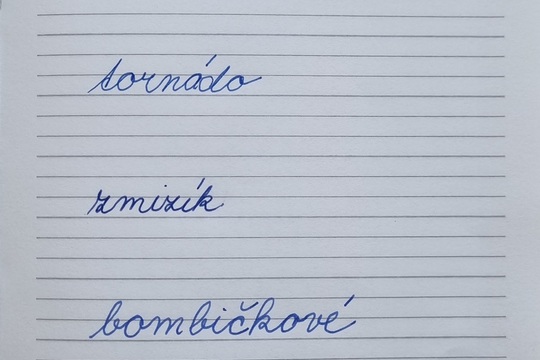 tornádo
zmizík
bombičkové